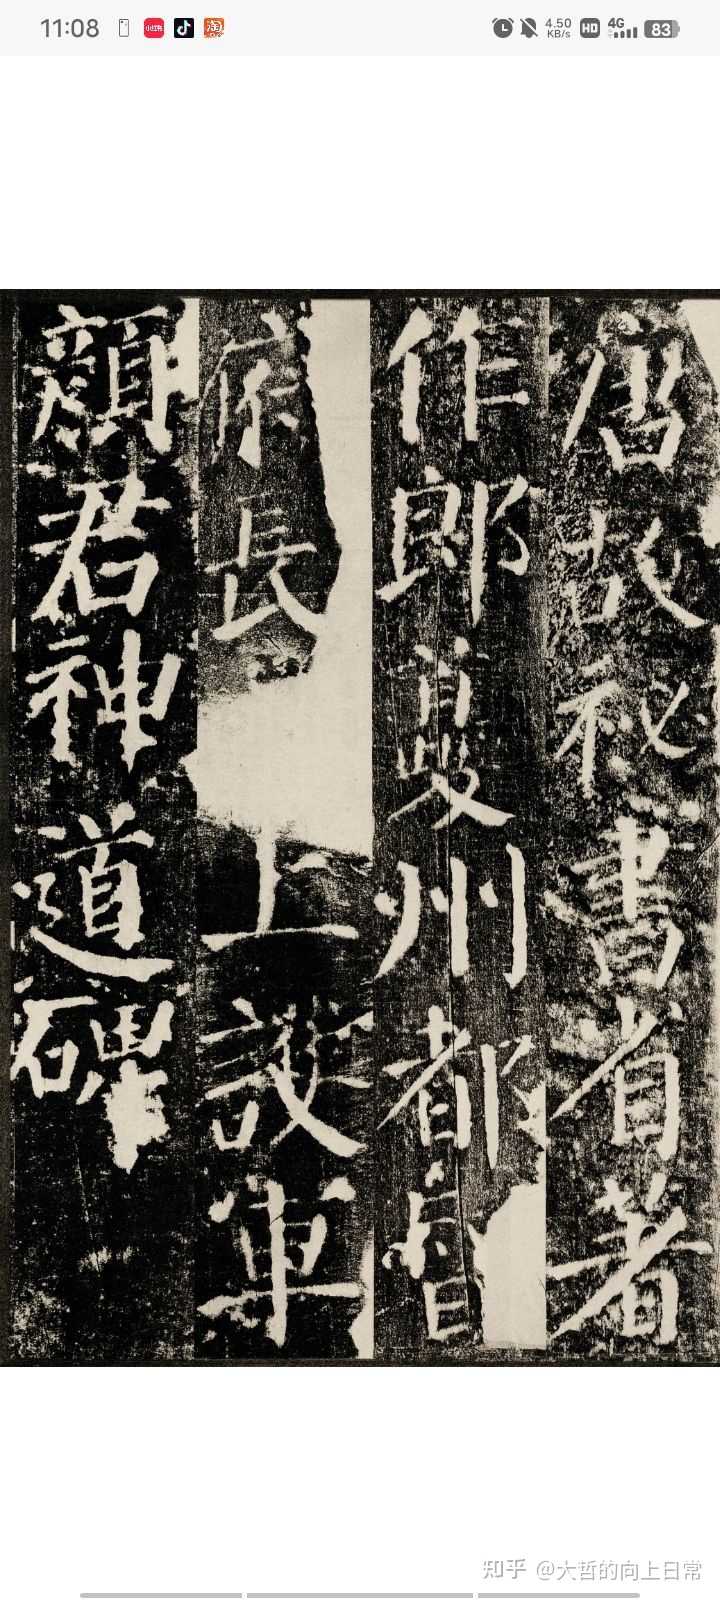 11:08
小红书
淘
4.50
KB/s
HD
4G
83
唐故祕書省著
作郎夔州都督
府長上護軍
顏君神道碑
知乎 @大哲的向上日常